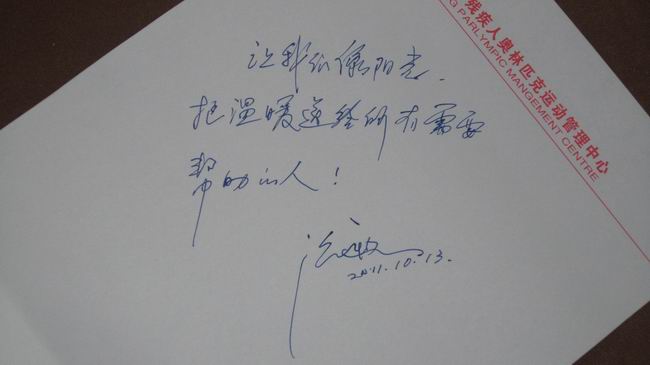 残疾人奥林匹克运动管理中心
G PARLYMPIC MANGEMENT CENTRE
让我们像阳光，
把温暖送给所有需要
帮助的人！
2011.10.13.